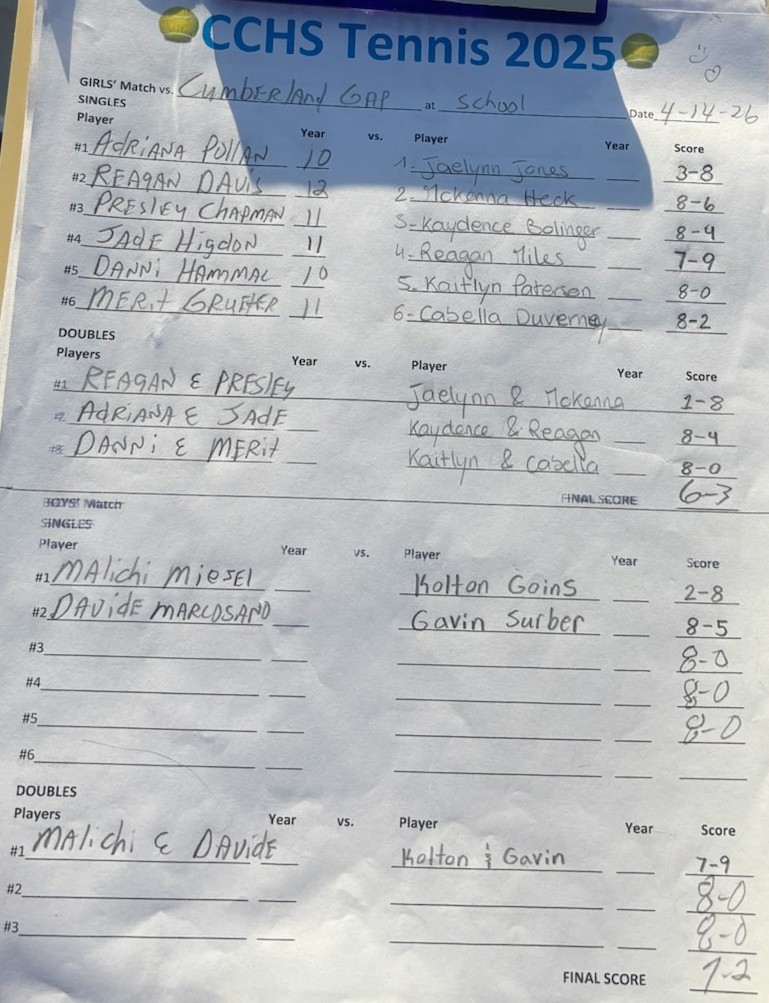 CCHS Tennis 2025
GIRLS' Match vs. Cumberland Gap at school Date 4-14-26
SINGLES
Player Year vs. Player Year Score
#1 Adriana Pollan 10 1. Jaelynn Jones 3-8
#2 Reagan Davis 12 2. Mckenna Heck 8-6
#3 Presley Chapman 11 3-Kaydence Bolinger 8-4
#4 Jade Higdon 11 4-Reagan Miles 7-9
#5 Danni Hammac 10 5. Kaitlyn Paterson 8-0
#6 Merit Gruffer 11 6-Cabella Duverney 8-2
DOUBLES
Players Year vs. Player Year Score
#1 Reagan & Presley Jaelynn & Mckenna 1-8
#2 Adriana & Jade Kaydence & Reagan 8-4
#3 Danni & Merit Kaitlyn & Cabella 8-0
FINAL SCORE 6-3
BOYS' Match
SINGLES
Player Year vs. Player Year Score
#1 Malichi Miesel Kolton Goins 2-8
#2 Davide Marcosano Gavin Surber 8-5
#3 8-0
#4 8-0
#5 8-0
#6
DOUBLES
Players Year vs. Player Year Score
#1 Malichi & Davide Kolton & Gavin 7-9
#2 8-0
#3 8-0
FINAL SCORE 7-2